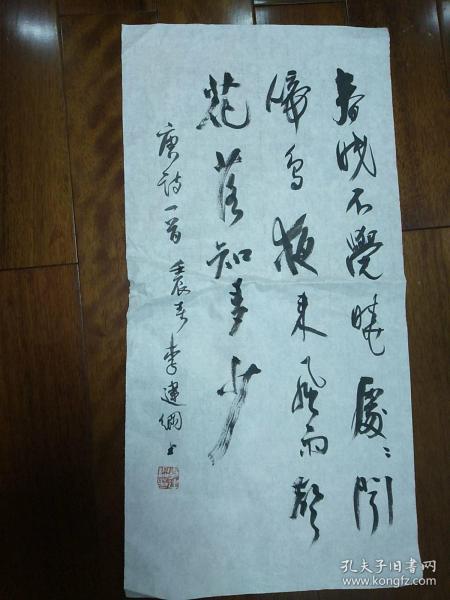 春眠不覺曉處〻聞
啼鳥夜来風雨聲
花落知多少
唐詩一首 壬辰春 李建綱书
孔夫子旧书网
www.kongfz.com